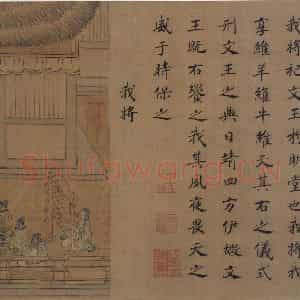 我將祀文王於明堂也我將我
享維羊維牛維天其右之儀式
刑文王之典日靖四方伊嘏文
王既右饗之我其夙夜畏天之
威于時保之
我將
Shufawang.CN